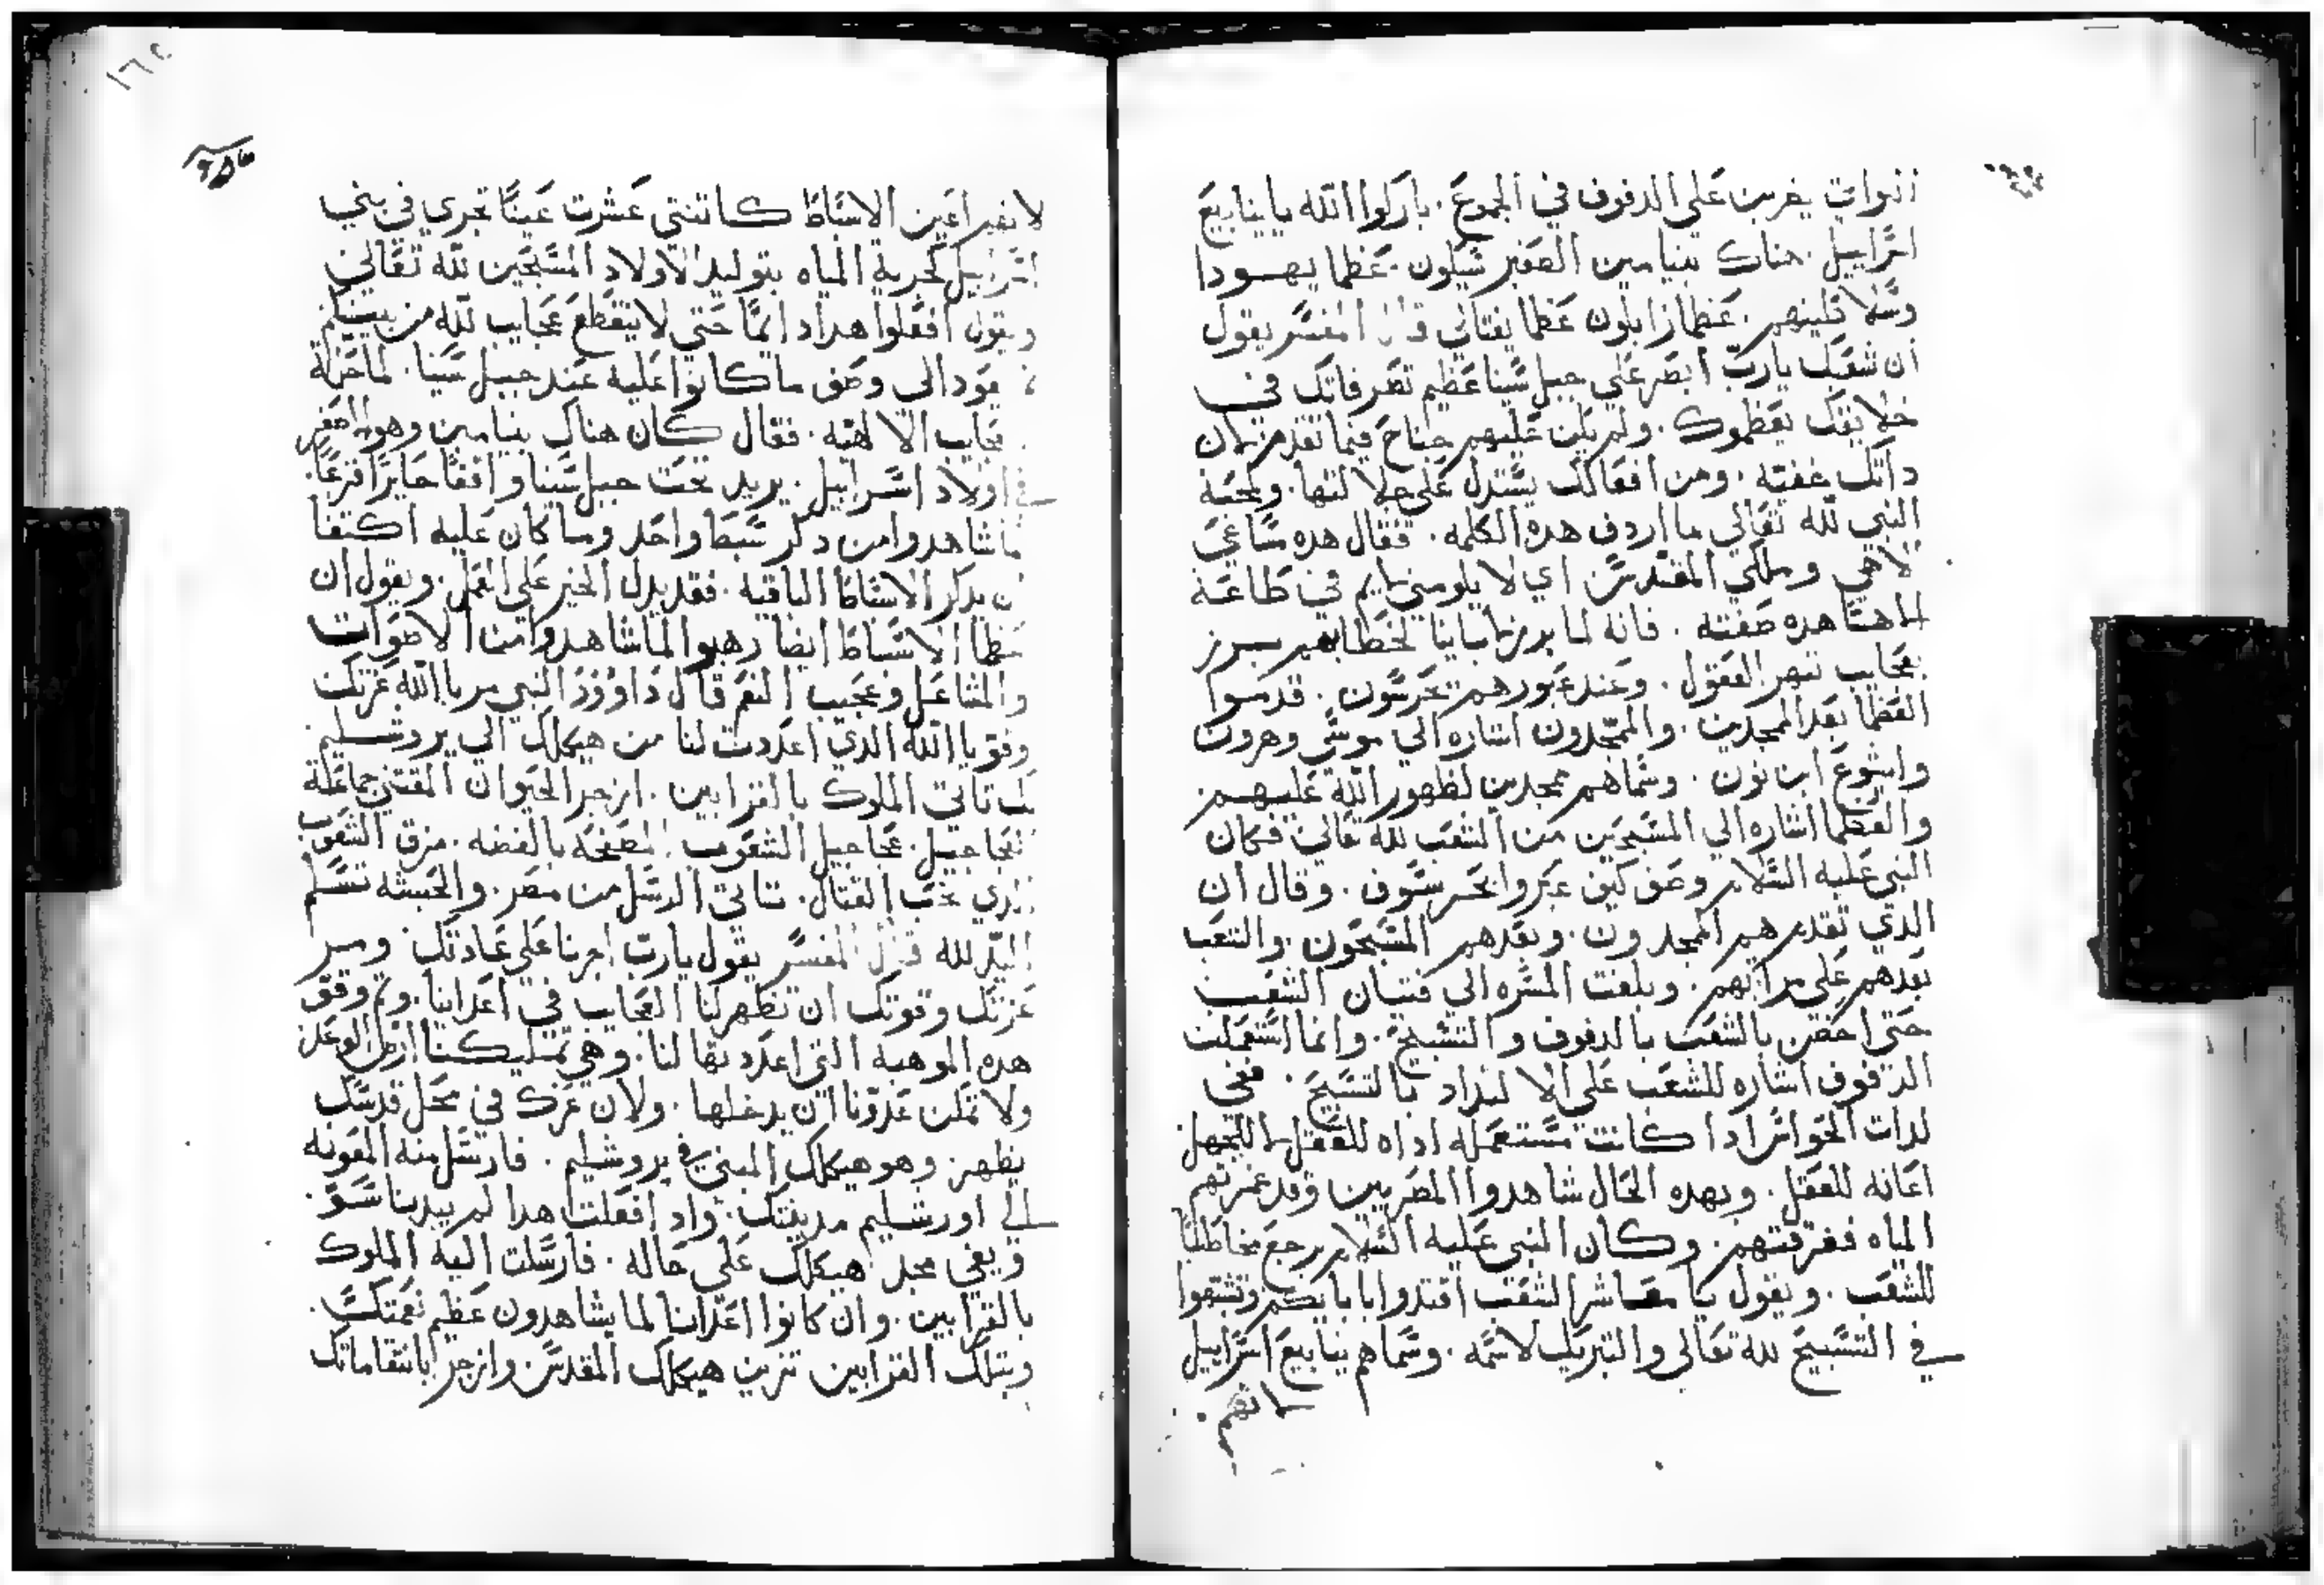 اللواتي يضربن على الدفوف في الجموع. باركوا الله يا ينابيع
اسراييل. هناك بنيامين الصغير شيلون. عظما يهودا
وسلاطينهم. عظما زابلون عظما نفتالي قال المفسر يقول
ان شعبك يارب ابصر على جبل سينا عظيم تصرفاتك في
خلايقك يعظموك. ولم يكن عليهم جناح فيما تقدم لان
داتك خفيه. ومن افعالك يستدل على جلالتها. ولمحبة
النبي لله تعالى ما اردف هذه الكلمه. فقال هده ساعي
الاهي وملكي المقدس اي لا يلومني لايم في طاعة
الاهنا هده صفته. فانه لما برز لابآينا لخطابهم برز
بعجايب تبهر العقول. وعند عبورهم بحر سوف. قدموا
العظما بعد الممجدين. والممجدون اشاره الي موسى وهرون
وايشوع ابن نون. وسماهم ممجدين لظهور الله عليهم.
والعظما اشاره الي المسبحين من الشعب لله تعالى فكان
النبي عليه السلام وصف كيف عبروا بحر سوف. وقال ان
الدي تقدم هم الممجدون. وبعدهم المسبحون والشعب
بعدهم على مراتبهم. وبلغت المسره الي فتيان الشعب
حتي احفقن بالشعب بالدفوف والتسبيح. وانما استعملت
الدفوف اشاره للشعب على الالتداد بالتسبيح. ففي
لدات الحواس ادا كانت مستعمله اداه للعقل لا للجهل
اعانه للعقل. وبهده الحال شاهدوا المصريين وقد غمرتهم
المياه فغرقتهم. وكان النبي عليه السلام رجع مخاطبا
للشعب. ويقول يا معاشر الشعب اقتدوا بابايكم وتشبهوا
في التسبيح لله تعالى والتبريك لاسمه. وسماهم ينابيع اسراييل
لانهم.
١٦٢
لانفجر اعين الاسباط كاتنتى عشرت عينا تجري في بني
اسراييل كجرية المياه بتوليد الاولاد المسبحين لله تعالى
ويقول افعلوا هدا دايما حتى لا ينقطع عجايب الله من بينكم
يعود الى وصف ما كانوا عليه عند جبل سينا. لملاحظة
عجايب الالاهيه. فقال كان هناك بنيامين وهو الصغير
في اولاد اسراييل. يريد تحت جبل سينا واقفا حايرا فزعا.
ما شاهدوا من دكر سبط واحد وما كان عليه اكتفا
ان يدكر الاسباط الباقيه. فقد يدل الخبر على الكل. ويقول ان
عظما الاسباط ايضا رهبوا لما شاهدوا من الاصوات
والمشاعل وعجيب النغم قال داوود النبي مر يا الله عزتك
وقو يا الله الدي اعددت لنا من هيكلك الي يروشليم
لك تاتي الملوك بالقرابين. ازجر الحيوان المقتني جماعة
العجاجيل. عجاجيل الشعوب المصفحه بالفضه. مزق الشعوب
الدي تحب القتال. تاتي الرسل من مصر. والحبشه تسلم
اليد لله قال المفسر يقول يارب اجرنا على عادتك ومر
عزتك وقوتك ان تظهر لنا العجايب في اعداينا. وقو
هده الموهبه التي اعددتها لنا. وهي تمليكنا ارض الوعد
ولا تمكن عدونا ان يدخلها. ولان عزك في محل قدسك
يظهر وهو هيكلك المبني في يروشليم. فارسل منه المعونه
الي اورشليم مدينتك. واد افعلت هدا لم يبدنا سو
وبقي مجد هيكلك على حاله. فارسلت اليه الملوك
بالقرابين. وان كانوا اعداينا لما يشاهدون عظم نعمتك.
وبتلك القرابين تزين هيكلك المقدس وازجر بانتقاماتك